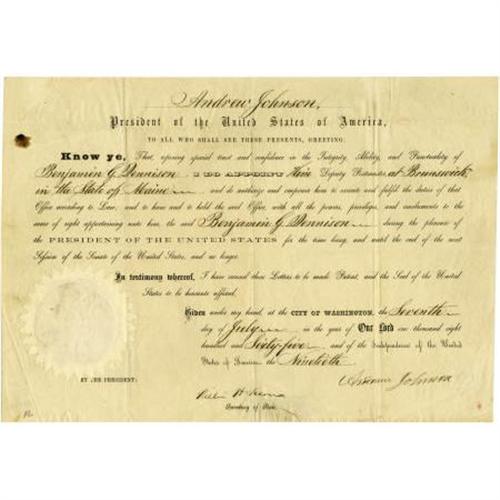 Andrew Johnson,
President of the United States of America,
TO ALL WHO SHALL SEE THESE PRESENTS, GREETING:
Know ye, That, reposing special trust and confidence in the Integrity, Ability, and Punctuality of
Benjamin G Dennison, I DO APPOINT him Deputy Postmaster at Brunswick
in the State of Maine and do authorize and empower him to execute and fulfil the duties of that
Office according to Law; and to have and to hold the said Office, with all the powers, privileges, and emoluments to the
same of right appertaining unto him, the said Benjamin G. Dennison during the pleasure of the
PRESIDENT OF THE UNITED STATES for the time being, and until the end of the next
Session of the Senate of the United States, and no longer.
In testimony whereof, I have caused these Letters to be made Patent, and the Seal of the United
States to be hereunto affixed.
Given under my hand, at the CITY OF WASHINGTON, the Seventh
day of July in the year of Our Lord one thousand eight
hundred and Sixty-five and of the Independence of the United
States of America the Ninetieth
BY THE PRESIDENT:
Andrew Johnson
Secretary of State.